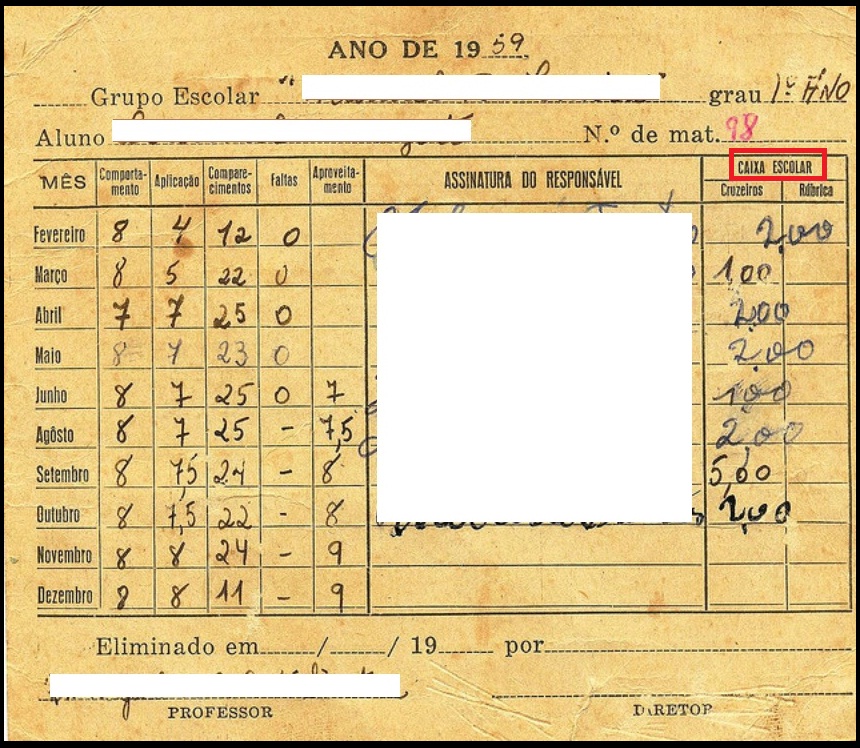 ANO DE 1959
Grupo Escolar grau 1º ANO
Aluno N.º de mat. 98
MÊS Comporta-mento Aplicação Compare-cimentos Faltas Aproveita-mento ASSINATURA DO RESPONSÁVEL CAIXA ESCOLAR
Cruzeiros Rúbrica
Fevereiro 8 4 12 0 2,00
Março 8 5 22 0 1,00
Abril 7 7 25 0 2,00
Maio 8 7 23 0 2,00
Junho 8 7 25 0 7 1,00
Agôsto 8 7 25 - 7,5 2,00
Setembro 8 7,5 24 - 8 5,00
Outubro 8 7,5 22 - 8 2,00
Novembro 8 8 24 - 9
Dezembro 8 8 11 - 9
Eliminado em / / 19 por
PROFESSOR DIRETOR